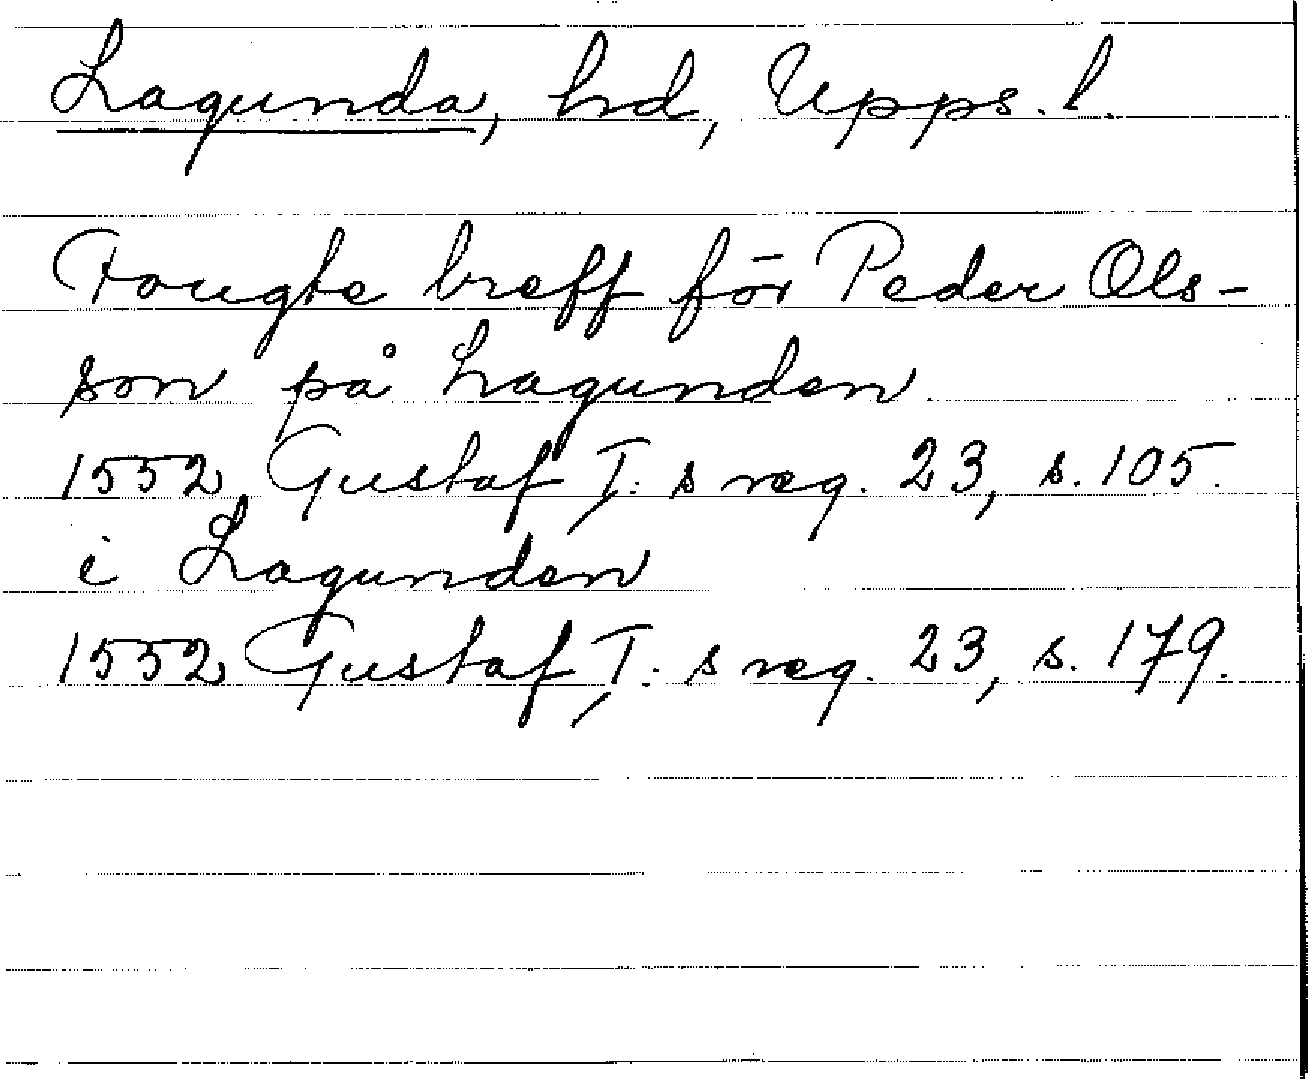 Lagunda, hd, Upps. l.
Fougte breff för Peder Ols-
son på Lagunden
1552 Gustaf I:s reg. 23, s. 105.
i Lagunden
1552 Gustaf I:s reg. 23, s. 179.